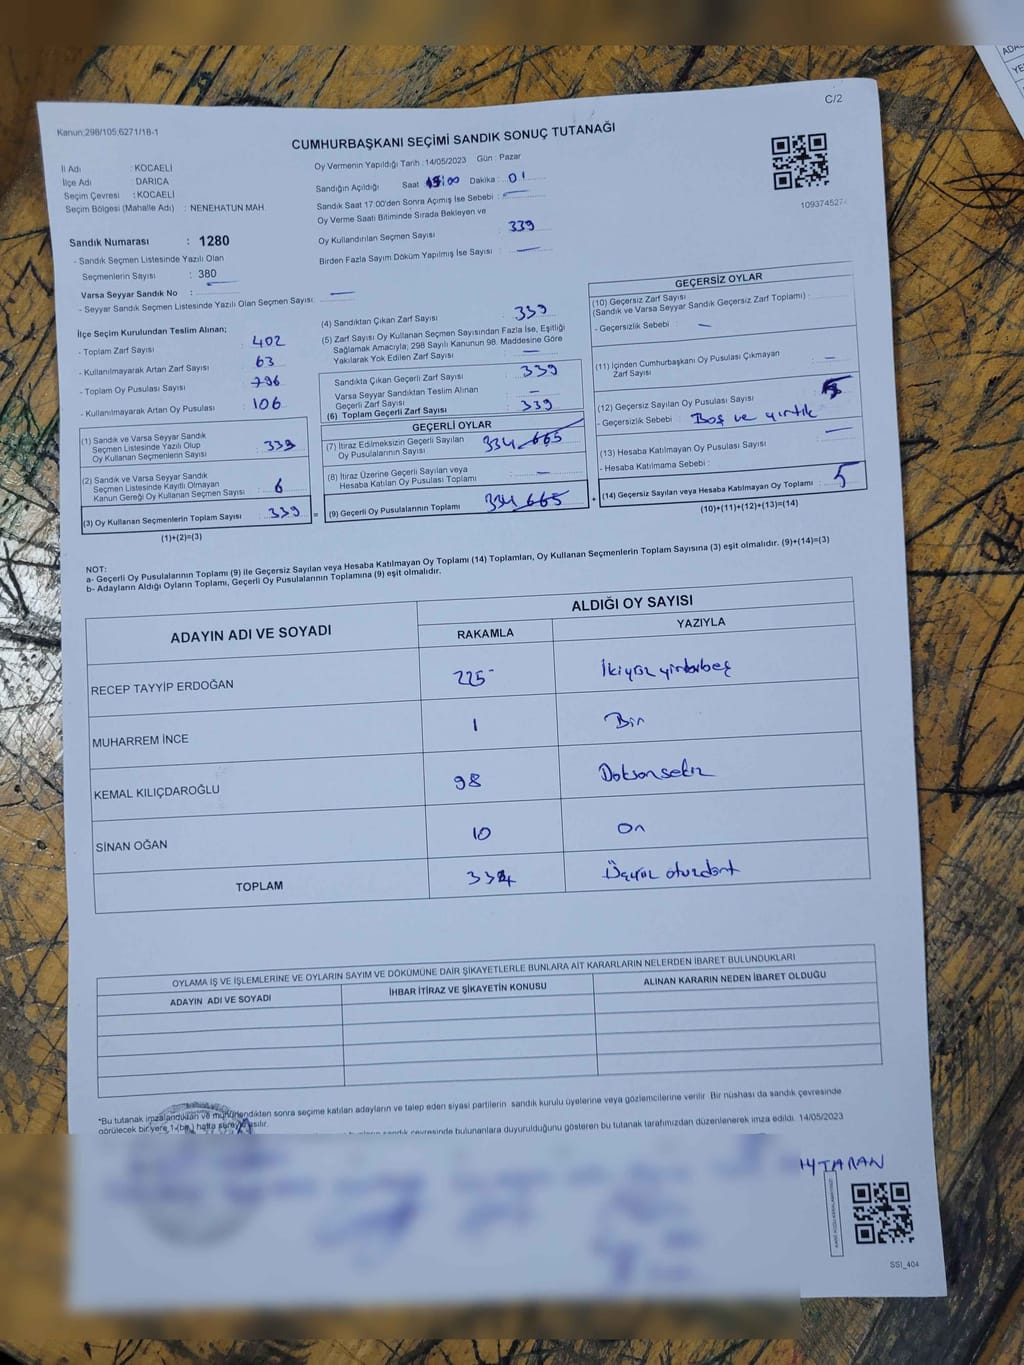 C/2
Kanun:298/105,6271/18-1
CUMHURBAŞKANI SEÇİMİ SANDIK SONUÇ TUTANAĞI
İl Adı : KOCAELİ
İlçe Adı : DARICA
Seçim Çevresi : KOCAELİ
Seçim Bölgesi (Mahalle Adı) : NENEHATUN MAH.
Sandık Numarası : 1280
- Sandık Seçmen Listesinde Yazılı Olan
Seçmenlerin Sayısı : 380
Varsa Seyyar Sandık No : —
- Seyyar Sandık Seçmen Listesinde Yazılı Olan Seçmen Sayısı: —
Oy Vermenin Yapıldığı Tarih :14/05/2023 Gün : Pazar
Sandığın Açıldığı Saat :00 Dakika : 01
Sandık Saat 17:00'den Sonra Açımış İse Sebebi : —
Oy Verme Saati Bitiminde Sırada Bekleyen ve
Oy Kullandırılan Seçmen Sayısı : 339
Birden Fazla Sayım Döküm Yapılmış İse Sayısı : —
109374527
İlçe Seçim Kurulundan Teslim Alınan;
- Toplam Zarf Sayısı : 402
- Kullanılmayarak Artan Zarf Sayısı : 63
- Toplam Oy Pusulası Sayısı :
- Kullanılmayarak Artan Oy Pusulası : 106
(1) Sandık ve Varsa Seyyar Sandık
Seçmen Listesinde Yazılı Olup
Oy Kullanan Seçmenlerin Sayısı : 333
(2) Sandık ve Varsa Seyyar Sandık
Seçmen Listesinde Kayıtlı Olmayan
Kanun Gereği Oy Kullanan Seçmen Sayısı : 6
(3) Oy Kullanan Seçmenlerin Toplam Sayısı : 339
(1)+(2)=(3)
(4) Sandıktan Çıkan Zarf Sayısı : 339
(5) Zarf Sayısı Oy Kullanan Seçmen Sayısından Fazla İse, Eşitliği
Sağlamak Amacıyla, 298 Sayılı Kanunun 98. Maddesine Göre
Yakılarak Yok Edilen Zarf Sayısı : —
Sandıkta Çıkan Geçerli Zarf Sayısı : 339
Varsa Seyyar Sandıktan Teslim Alınan
Geçerli Zarf Sayısı : —
(6) Toplam Geçerli Zarf Sayısı : 339
GEÇERLİ OYLAR
(7) İtiraz Edilmeksizin Geçerli Sayılan
Oy Pusulasının Sayısı : 334 665
(8) İtiraz Üzerine Geçerli Sayılan veya
Hesaba Katılan Oy Pusulası Toplamı : —
= (9) Geçerli Oy Pusulalarının Toplamı : 334 665 +
GEÇERSİZ OYLAR
(10) Geçersiz Zarf Sayısı
(Sandık ve Varsa Seyyar Sandık Geçersiz Zarf Toplamı) :
- Geçersizlik Sebebi : —
(11) İçinden Cumhurbaşkanı Oy Pusulası Çıkmayan
Zarf Sayısı : —
(12) Geçersiz Sayılan Oy Pusulası Sayısı : 5
- Geçersizlik Sebebi : Boş ve yırtık
(13) Hesaba Katılmayan Oy Pusulası Sayısı : —
- Hesaba Katılmama Sebebi :
(14) Geçersiz Sayılan veya Hesaba Katılmayan Oy Toplamı : 5
(10)+(11)+(12)+(13)=(14)
NOT:
a- Geçerli Oy Pusulalarının Toplamı (9) ile Geçersiz Sayılan veya Hesaba Katılmayan Oy Toplamı (14) Toplamları, Oy Kullanan Seçmenlerin Toplam Sayısına (3) eşit olmalıdır. (9)+(14)=(3)
b- Adayların Aldığı Oyların Toplamı, Geçerli Oy Pusulalarının Toplamına (9) eşit olmalıdır.
ADAYIN ADI VE SOYADI
ALDIĞI OY SAYISI
RAKAMLA YAZIYLA
RECEP TAYYİP ERDOĞAN 225 İkiyüz yirmibeş
MUHARREM İNCE 1 Bir
KEMAL KILIÇDAROĞLU 98 Doksansekiz
SİNAN OĞAN 10 On
TOPLAM 334 Üçyüz otuzdört
OYLAMA İŞ VE İŞLEMLERİNE VE OYLARIN SAYIM VE DÖKÜMÜNE DAİR ŞİKAYETLERLE BUNLARA AİT KARARLARIN NELERDEN İBARET BULUNDUKLARI
ADAYIN ADI VE SOYADI
İHBAR İTİRAZ VE ŞİKAYETİN KONUSU
ALINAN KARARIN NEDEN İBARET OLDUĞU
*Bu tutanak imzalandıktan ve mühürlendikten sonra seçime katılan adayların ve talep eden siyasi partilerin sandık kurulu üyelerine veya gözlemcilerine verilir. Bir nüshası da sandık çevresinde
görülecek bir yere 1 (bir) hafta süreyle asılır.
sandık çevresinde bulunanlara duyurulduğunu gösteren bu tutanak tarafımızdan düzenlenerek imza edildi. 14/05/2023
TARAN
SSI_404